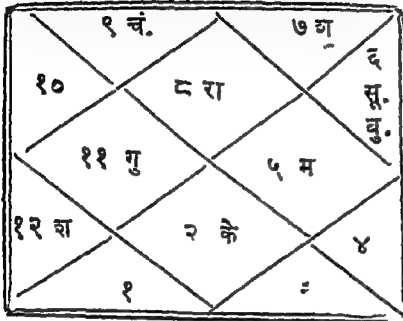 ९ चं.
७ शु
१०
८ रा
६
सू.
बु.
११ गु
५ म
१२ श
२ के
४
१